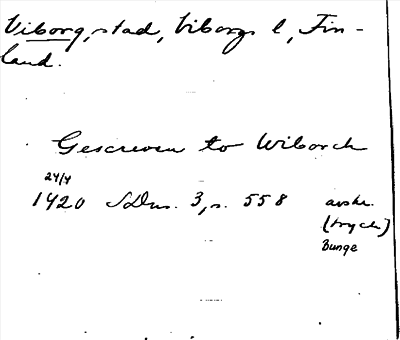 Viborg, stad, Viborgs l, Fin-
land.
Gescreven to Wiborch
24/4
1420 SDns. 3, s. 558 avskr.
(tryck)
Bunge